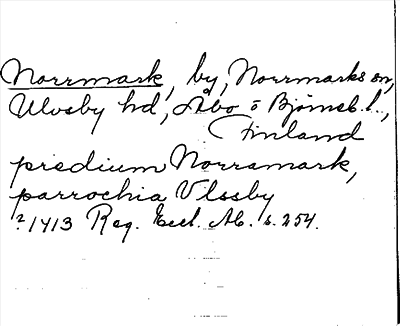 Norrmark, by, Norrmarks sn,
Ulvsby hd, Åbo o Björneb. l.,
Finland
predium Norramark,
parrochia Vlssby
?1413 Reg. Eccl. Ab. s. 254.